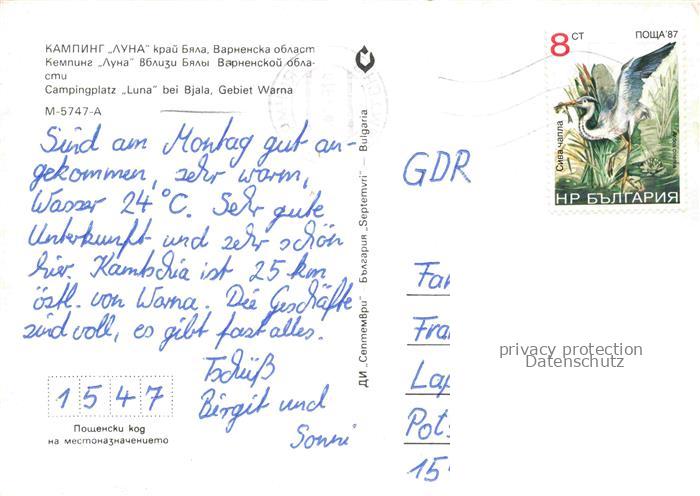 КАМПИНГ „ЛУНА" край Бяла, Варненска област
Кемпинг „Луна" Вблизи Бялы Варненской обла-
сти
Campingplatz „Luna" bei Bjala, Gebiet Warna
М-5747-А
Sind am Montag gut an-
gekommen, sehr warm,
Wasser 24°C. Sehr gute
Unterkunft und sehr schön
hier. Kamtschia ist 25 km
östl. von Warna. Die Geschäfte
sind voll, es gibt fast alles.
Tschüß
Birgit und
Sonni
1547
Пощенски код
на местоназначението
ДИ „Септември" България „Septemvri" — Bulgaria
8 СТ
ПОЩА'87
Сива чапла
НР БЪЛГАРИЯ
GDR
Fa
Fra
Lap
Pots
15
privacy protection
Datenschutz